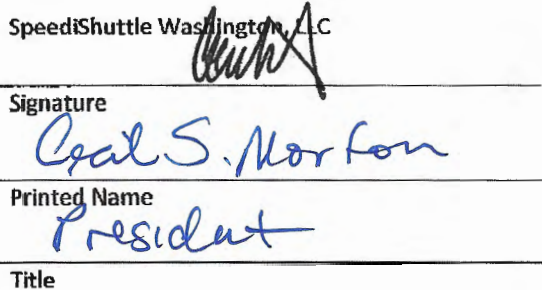 SpeediShuttle Washington, LLC
Signature
Cecil S. Morton
Printed Name
President
Title